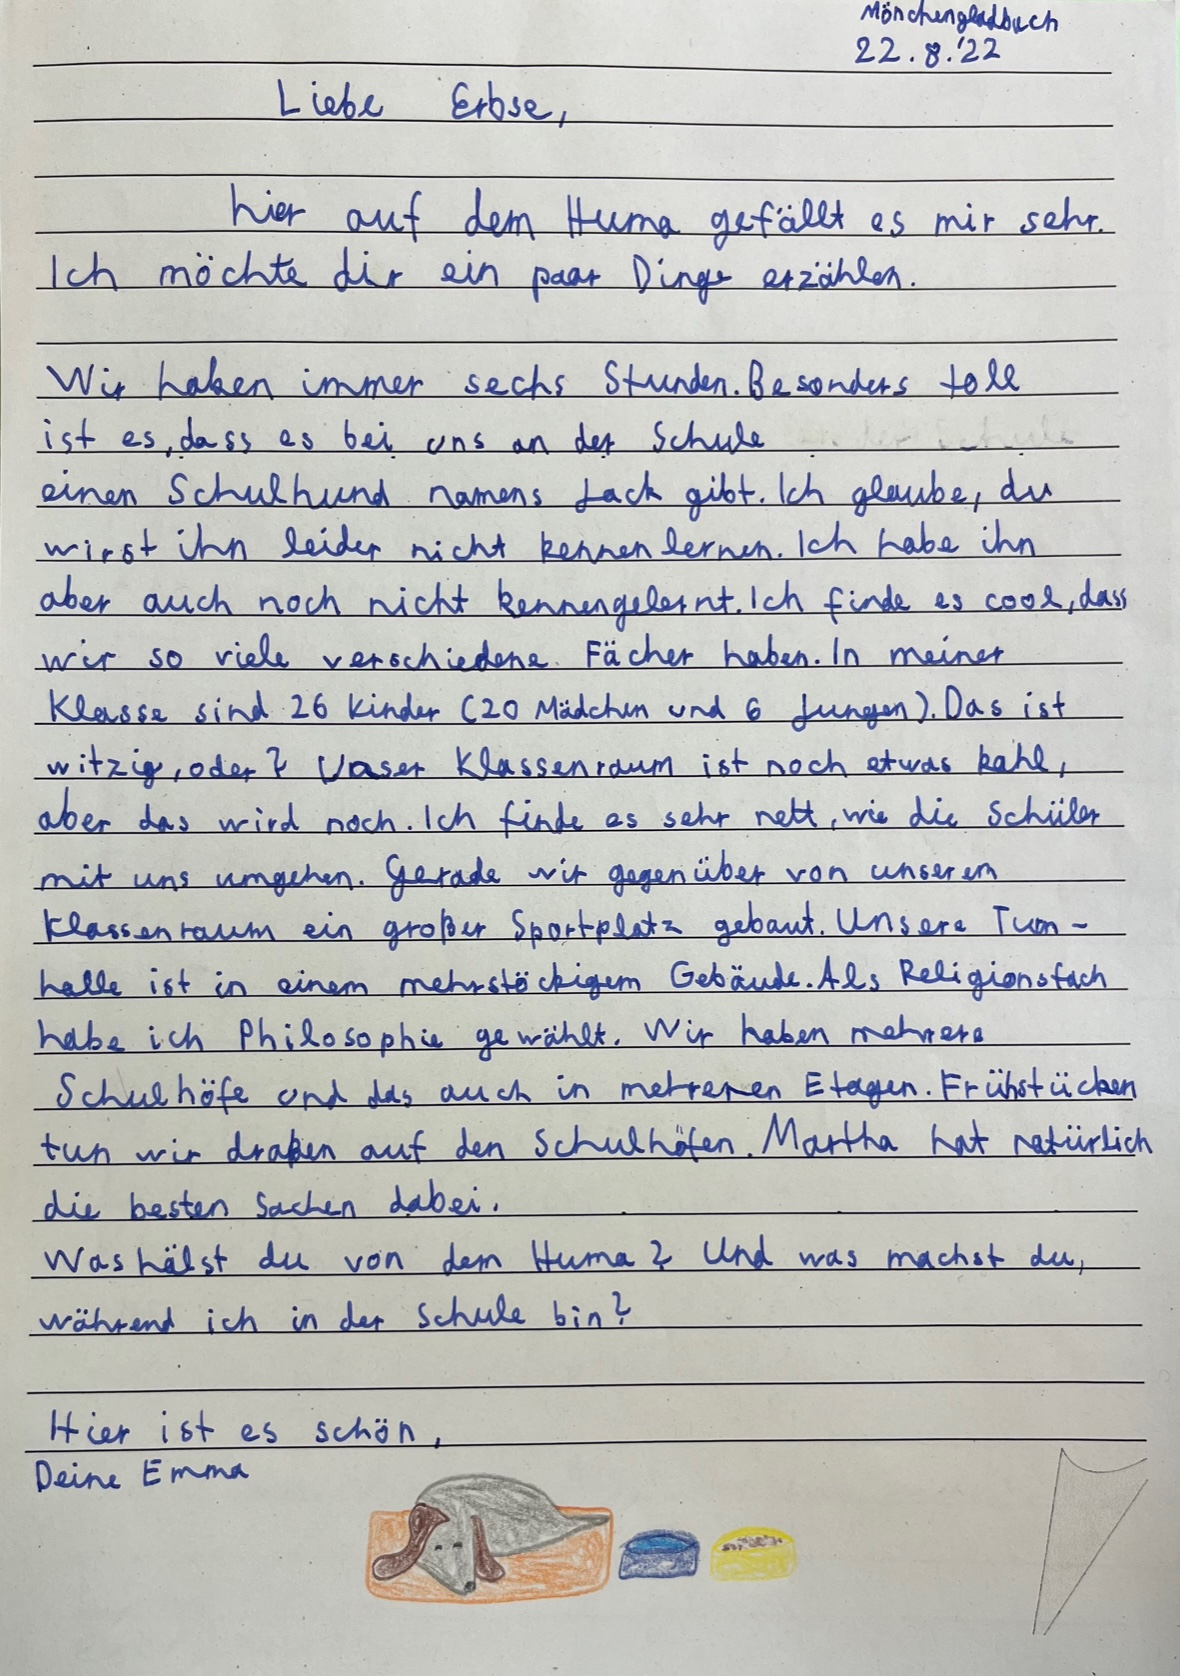 Mönchengladbach
22.8.'22
Liebe Erbse,
hier auf dem Huma gefällt es mir sehr.
Ich möchte dir ein paar Dinge erzählen.
Wir haben immer sechs Stunden. Besonders toll
ist es, dass es bei uns an der Schule
einen Schulhund namens Jack gibt. Ich glaube, du
wirst ihn leider nicht kennenlernen. Ich habe ihn
aber auch noch nicht kennengelernt. Ich finde es cool, dass
wir so viele verschiedene Fächer haben. In meiner
Klasse sind 26 Kinder (20 Mädchen und 6 Jungen). Das ist
witzig, oder? Unser Klassenraum ist noch etwas kahl,
aber das wird noch. Ich finde es sehr nett, wie die Schüler
mit uns umgehen. Gerade wir gegenüber von unserem
Klassenraum ein großer Sportplatz gebaut. Unsere Turn-
halle ist in einem mehrstöckigem Gebäude. Als Religionsfach
habe ich Philosophie gewählt. Wir haben mehrere
Schulhöfe und das auch in mehreren Etagen. Frühstücken
tun wir draßen auf den Schulhöfen. Martha hat natürlich
die besten Sachen dabei.
Was hälst du von dem Huma? Und was machst du,
während ich in der Schule bin?
Hier ist es schön,
Deine Emma